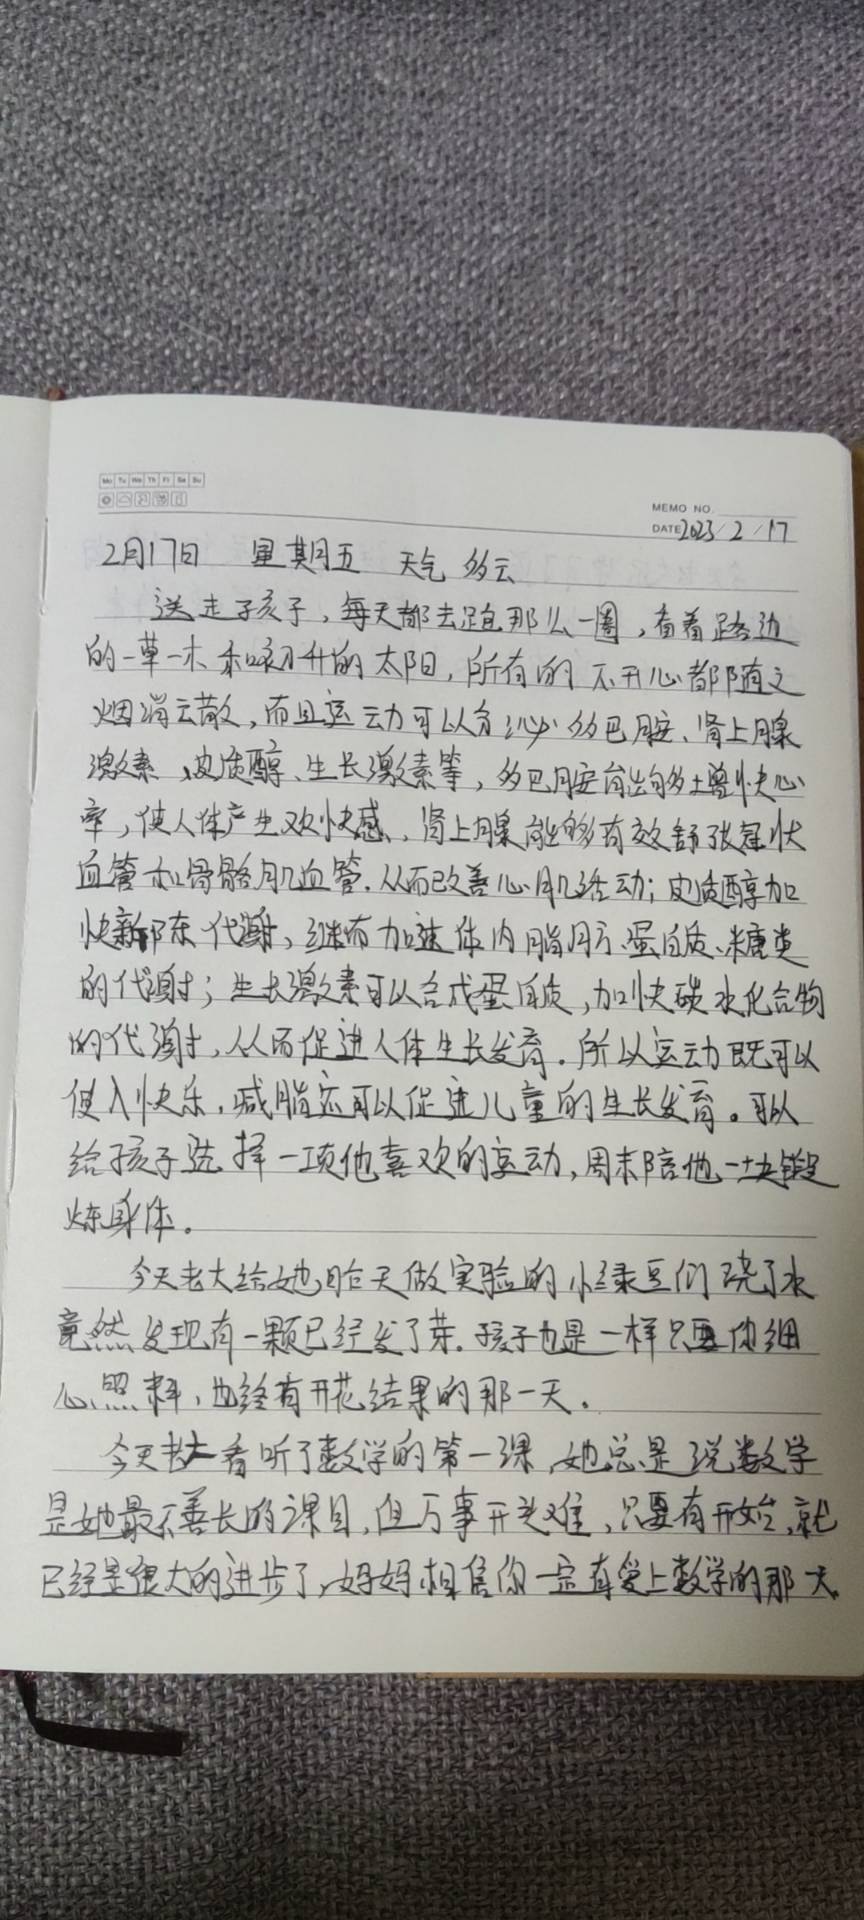 Mo Tu We Th Fr Sa Su
MEMO NO.
DATE 2023/2/17
2月17日 星期五 天气 多云
送走孩子，每天都去逛那么一圈，看着路边
的一草一木和初升的太阳，所有的不开心都随之
烟消云散，而且运动可以分泌多巴胺、肾上腺
激素、皮质醇、生长激素等，多巴胺能够增快心
率，使人体产生欢快感，肾上腺能够有效舒张冠状
血管和骨骼肌血管.从而改善心肌活动；皮质醇加
快新陈代谢，继而加速体内脂肪、蛋白质、糖类
的代谢；生长激素可以合成蛋白质，加快碳水化合物
的代谢，从而促进人体生长发育.所以运动既可以
使人快乐，减脂还可以促进儿童的生长发育。可以
给孩子选择一项他喜欢的运动，周末陪他一块锻
炼身体。
今天老大给她昨天做实验的小绿豆们浇了水
竟然发现有一颗已经发了芽.孩子也是一样只要你细
心照料，也终有开花结果的那一天.
今天老大看听了数学的第一课，她总是说数学
是她最不善长的课目，但万事开头难，只要有开始，就
已经是很大的进步了，妈妈相信你一定有爱上数学的那一天.